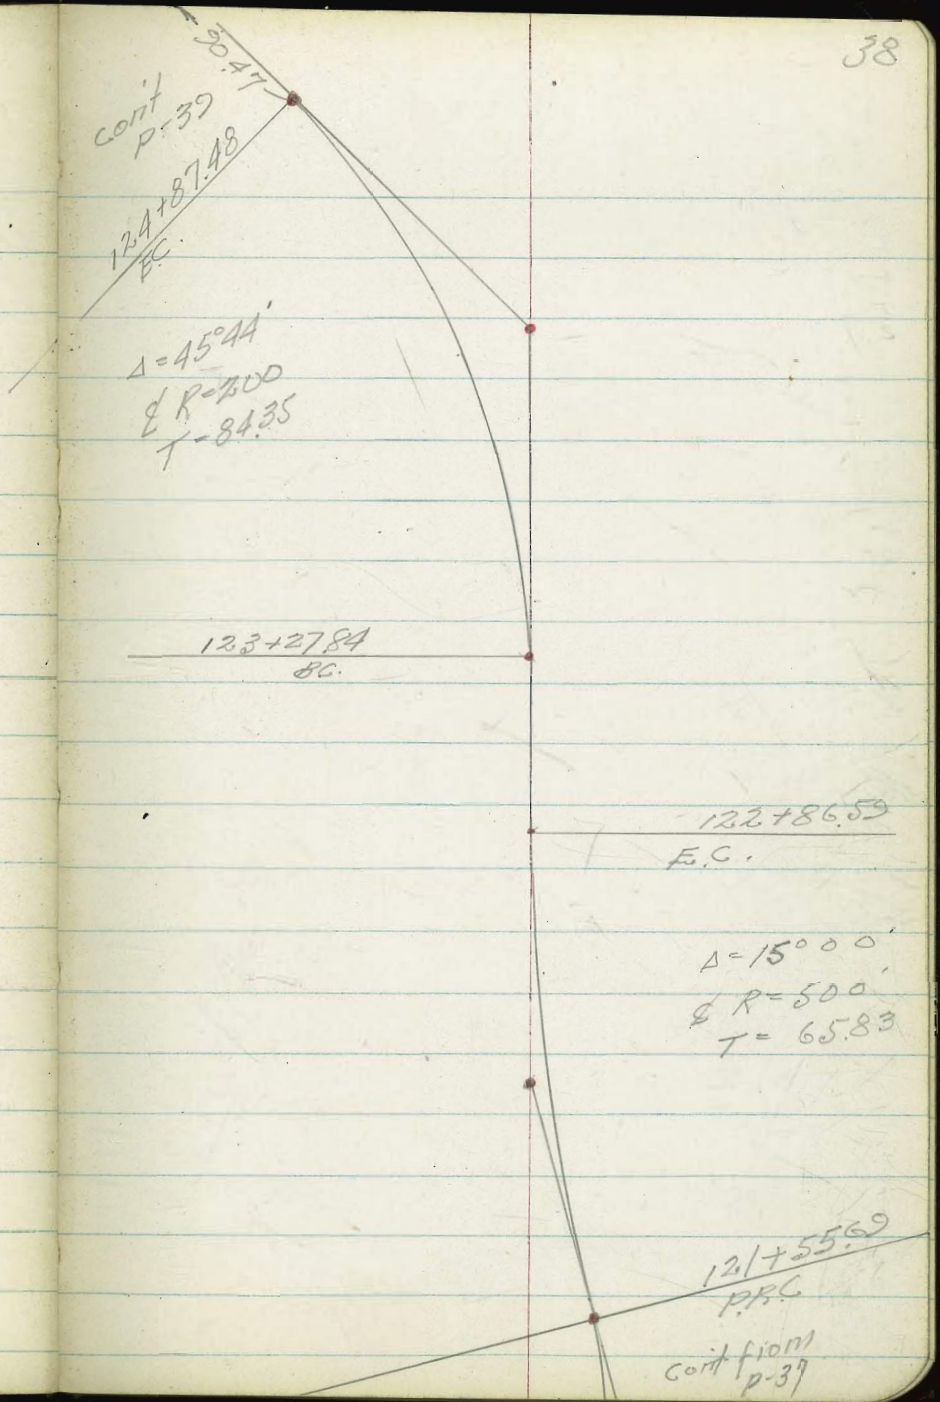 38
30.47
con't
p-39
124+87.48
E.C.
Δ=45°44'
⅊ R=200
T=84.35
123+27.84
B.C.
122+86.59
E.C.
Δ=15°00'
⅊ R=500'
T= 65.83
121+55.69
P.R.C
con't from
p-37